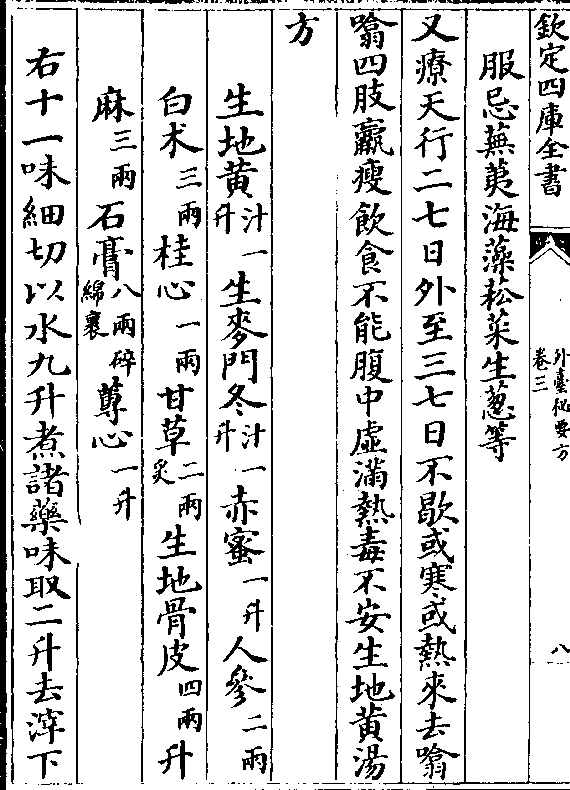 欽定四庫全書
外臺秘要方
卷三
八
服忌蕪荑海藻菘菜生葱等
又療天行二七日外至三七日不歇或寒或熱來去噏
噏四肢羸瘦飲食不能腹中虛滿熱毒不安生地黄湯
方
生地黄汁一升生麥門冬汁一升赤蜜一升人參二兩
白术三兩桂心一兩甘草二兩炙生地骨皮四兩升
麻三兩石膏八兩碎綿裹蓴心一升
右十一味細切以水九升煮諸藥味取二升去滓下